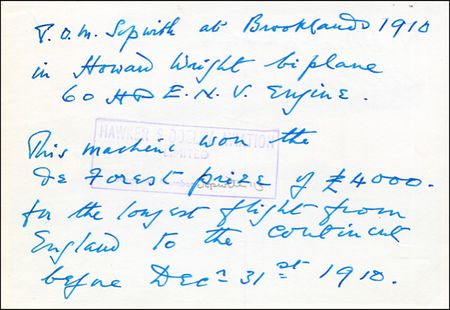 T.O.M. Sopwith at Brooklands 1910
in Howard Wright biplane
60 HP E.N.V. Engine.
HAWKER SIDDELEY AVIATION
LIMITED
This machine won the
De Forest prize of £4000.
for the longest flight from
England to the continent
before Decr 31st 1910.